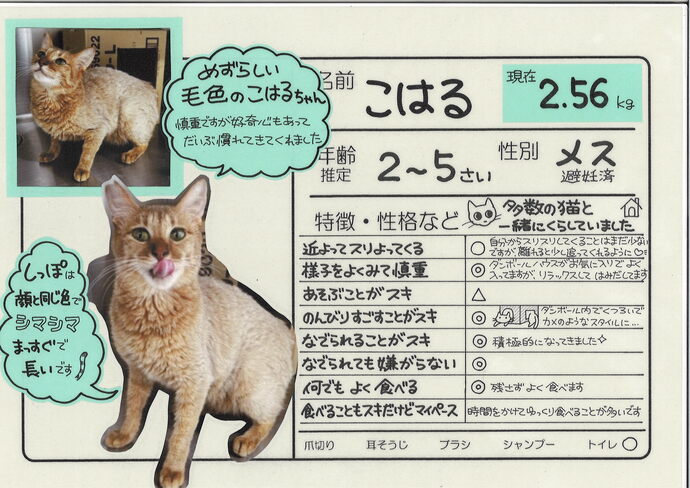 めずらしい
毛色のこはるちゃん
慎重ですが好奇心もあって
だいぶ慣れてきてくれました
名前 こはる
現在 2.56 kg
年齢 推定 2～5さい
性別 メス
避妊済
特徴・性格など
多数の猫と
一緒にくらしていました
近よってスリよってくる ○ 自分からスリスリしてくることはまだ少ない
ですが、離れると少し追ってくれるように♡
様子をよくみて慎重 ◎ ダンボールハウスがお気に入りでよく
入ってますが、リラックスして はみだしてます
あそぶことがスキ △
のんびりすごすことがスキ ◎ ダンボール内でくつろいで
カメのようなスタイルに…
なでられることがスキ ◎ 積極的になってきました
なでられても嫌がらない ◎
何でも よく 食べる ◎ 残さず よく 食べます
食べることもスキだけどマイペース 時間をかけてゆっくり食べることが多いです
爪切り 耳そうじ ブラシ シャンプー トイレ ○
しっぽは
顔と同じ色で
シマシマ
まっすぐで
長いです